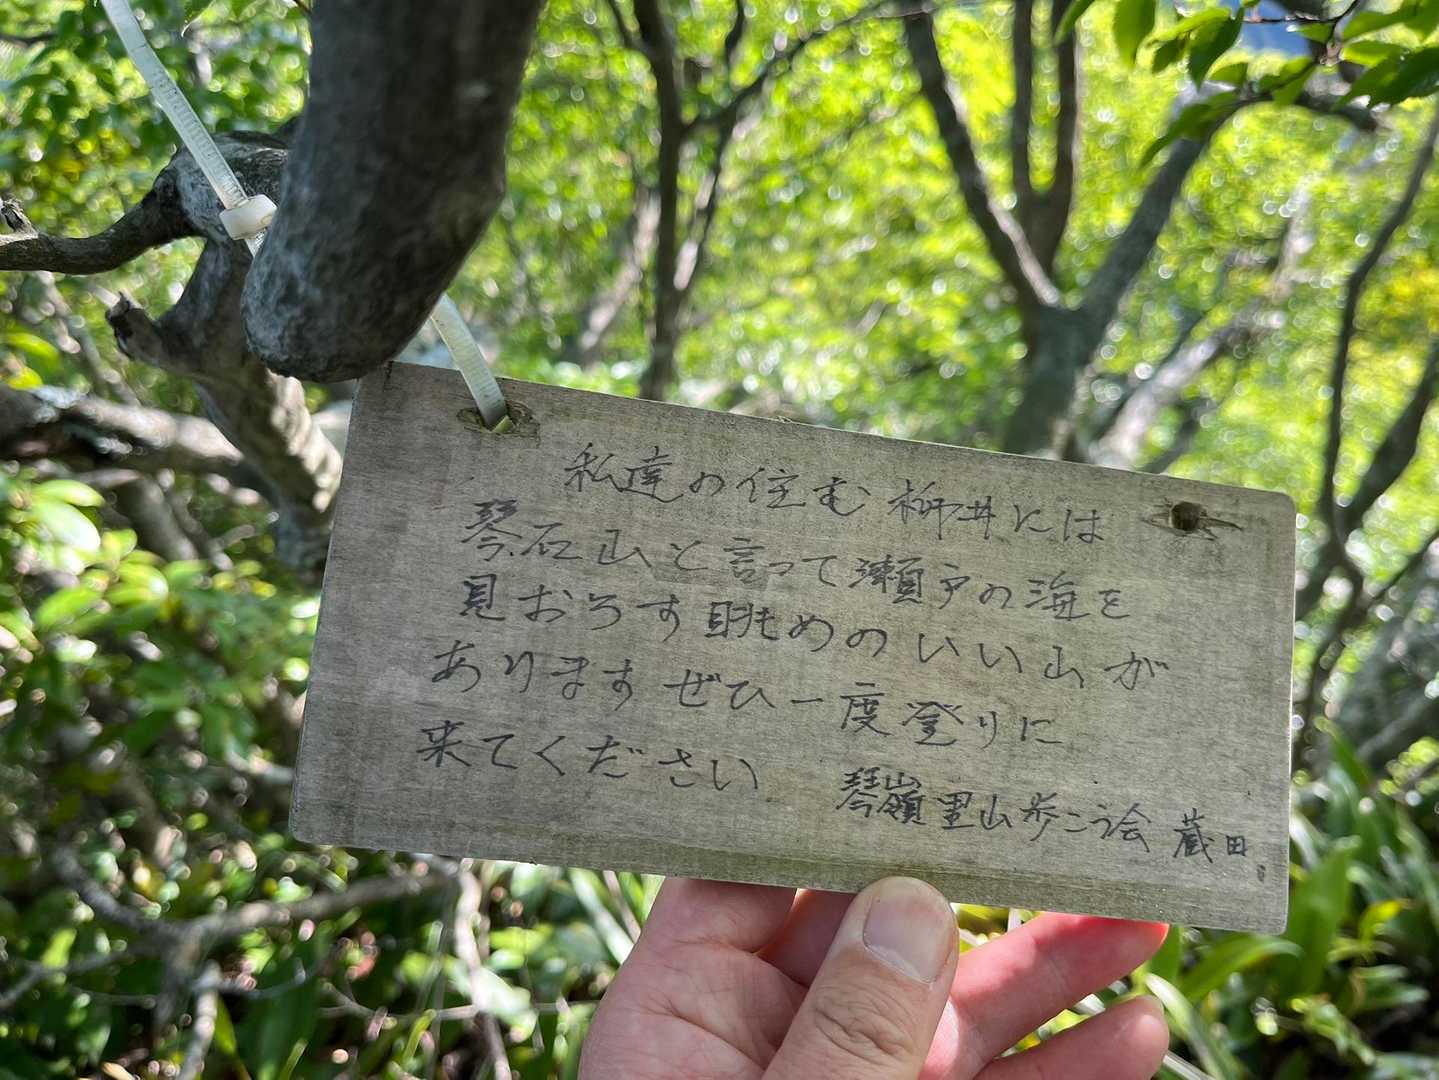 私達の住む柳井には
琴石山と言って瀬戸の海を
見おろす眺めのいい山が
ありますぜひ一度登りに
来てください
琴嶺里山歩こう会 蔵田